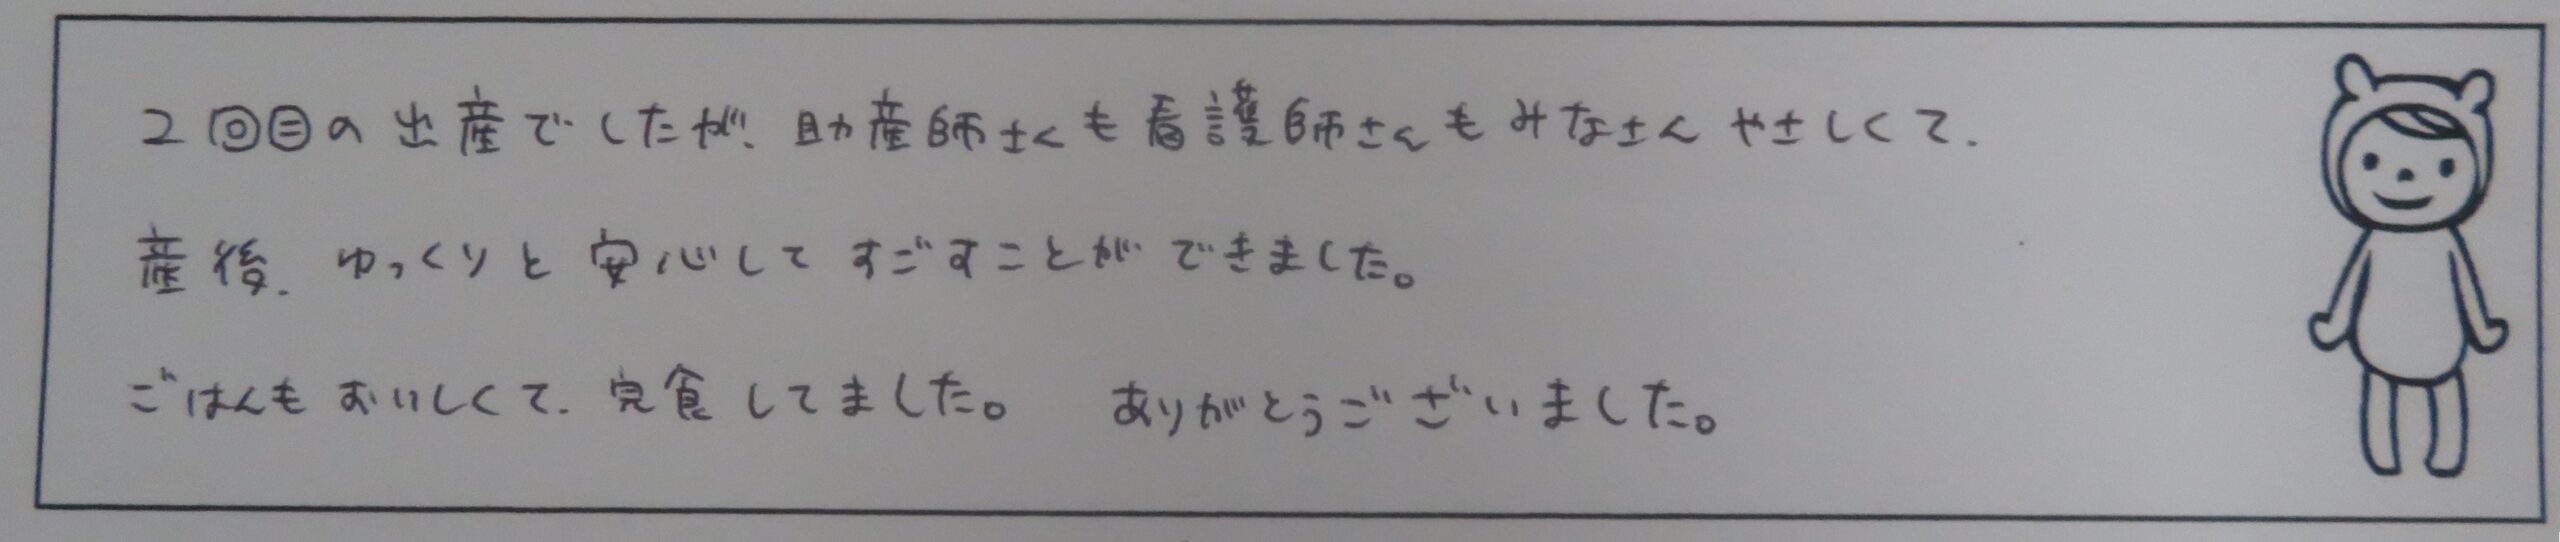 2回目の出産でしたが、助産師さんも看護師さんもみなさんやさしくて、
産後、ゆっくりと安心してすごすことができました。
ごはんもおいしくて、完食してました。 ありがとうございました。